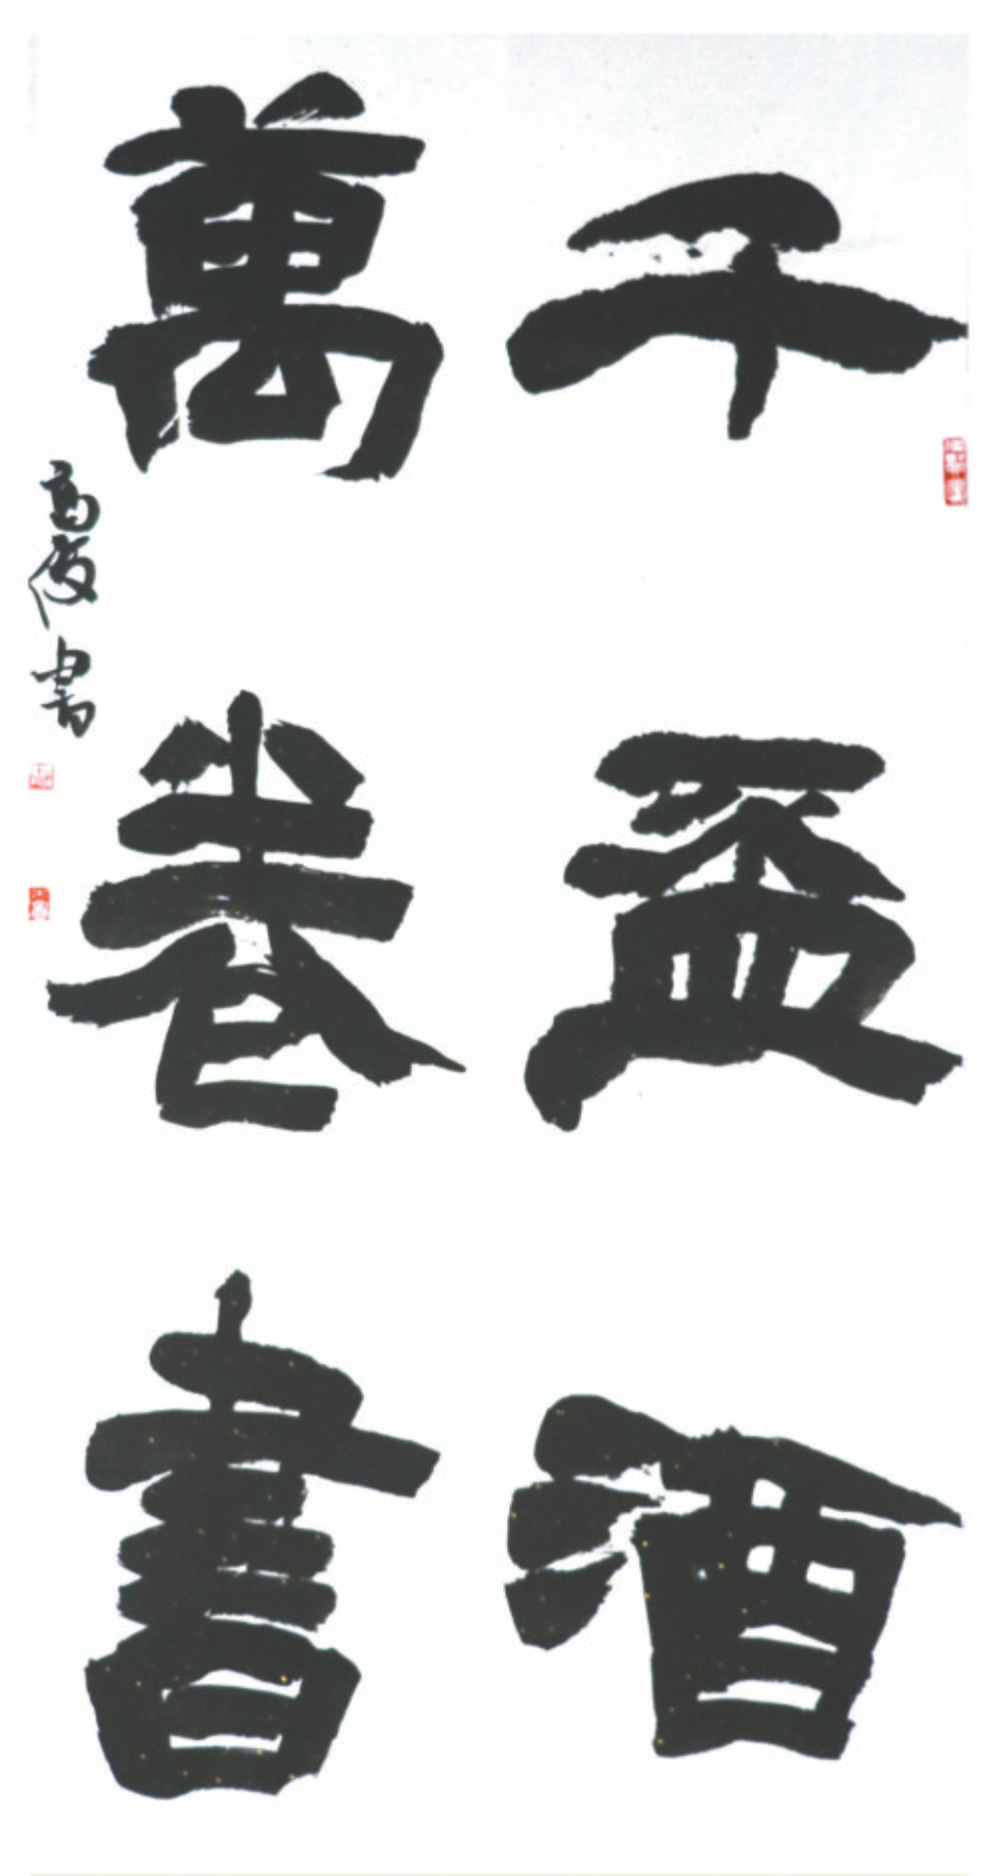 千盃酒
萬卷書
高俊書